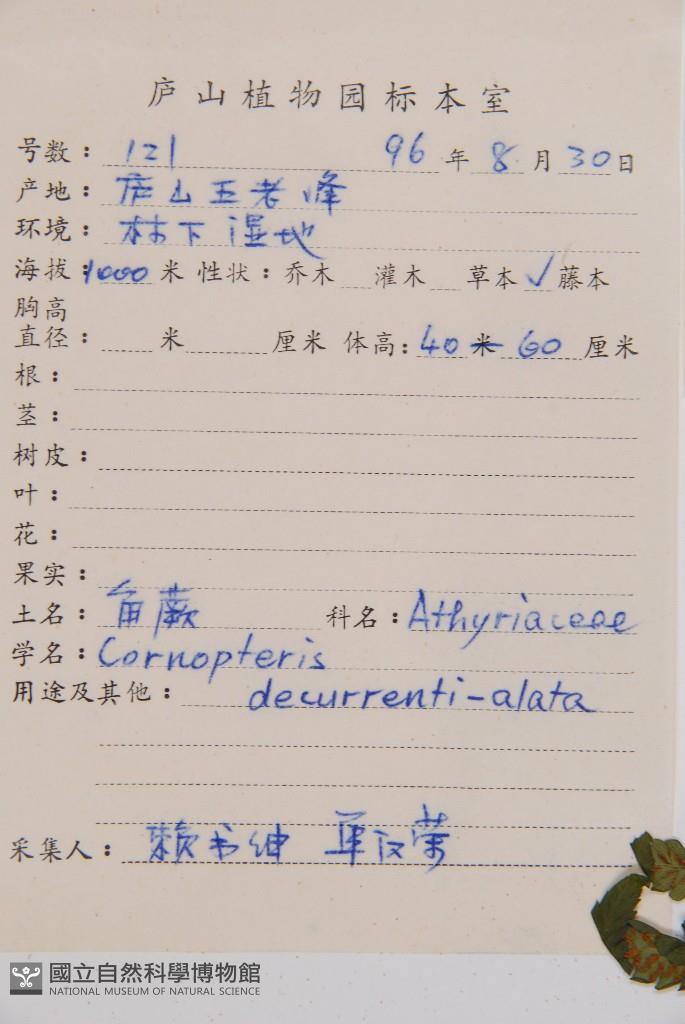 庐山植物园标本室
号数：121 96年8月30日
产地：庐山五老峰
环境：林下湿地
海拔：1000米 性状：乔木 灌木 草本√藤本
胸高
直径： 米 厘米 体高：40米60厘米
根：
茎：
树皮：
叶：
花：
果实：
土名：角蕨 科名：Athyriaceae
学名：Cornopteris
用途及其他：decurrenti-alata
采集人：赖书绅 单汉荣
國立自然科學博物館
NATIONAL MUSEUM OF NATURAL SCIENCE